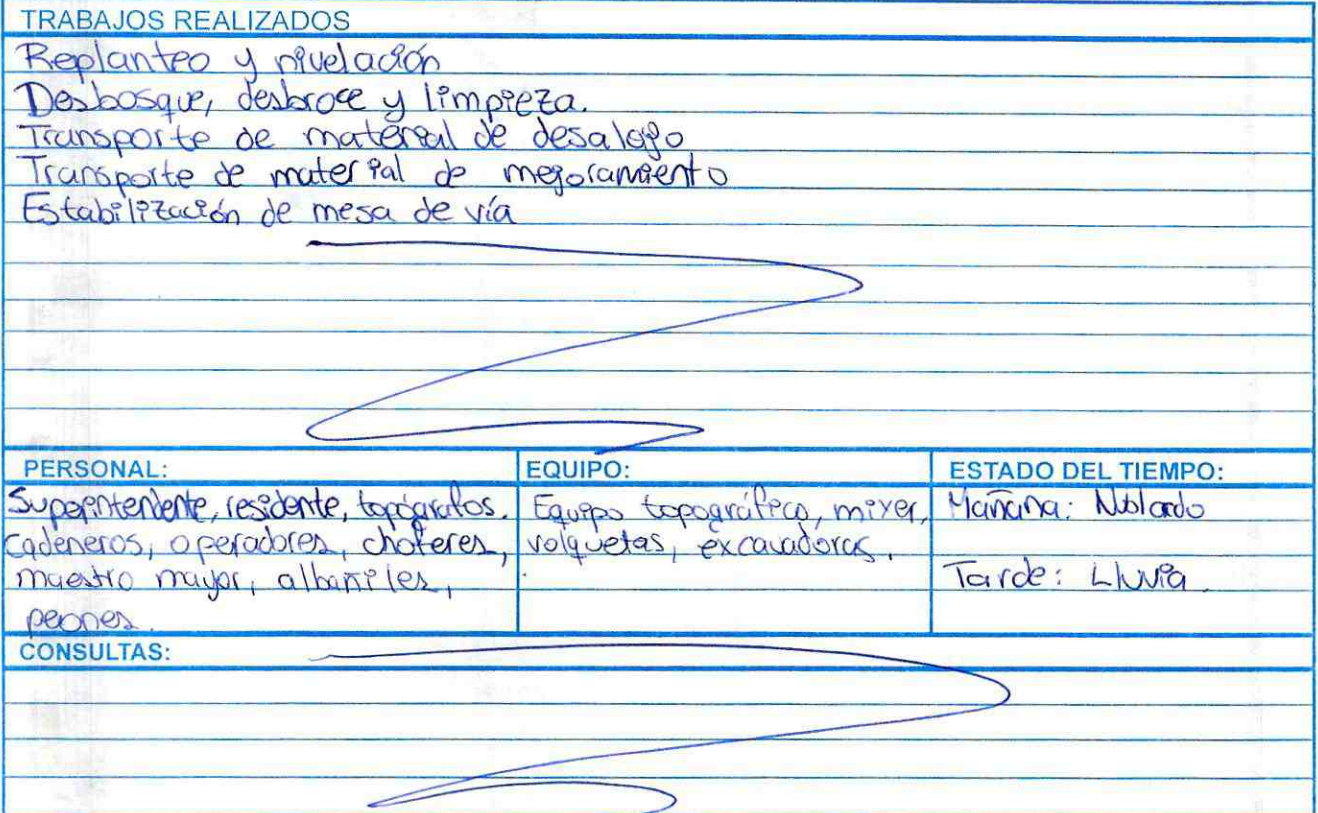 TRABAJOS REALIZADOS
Replanteo y nivelación
Desbosque, desbroce y limpieza.
Transporte de material de desalojo
Transporte de material de mejoramiento
Estabilización de mesa de vía
PERSONAL:
Superintendente, residente, topógrafos.
cadeneros, operadores, choferes,
maestro mayor, albañiles,
peones.
EQUIPO:
Equipo topográfico, mixer,
volquetas, excavadoras.
ESTADO DEL TIEMPO:
Mañana: Nublado
Tarde: Lluvia.
CONSULTAS: